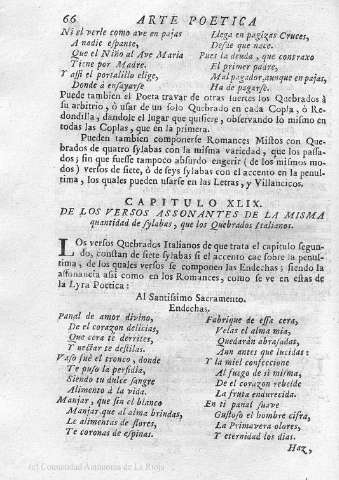 66 ARTE POETICA
Ni el verle como ave en pajas
A nadie espante,
Que el Niño al Ave Maria
Tiene por Madre.
Y assi el portalillo elige,
Donde à ensayarse
Llega en pagizas Cruces,
Desde que nace.
Pues la deuda, que contraxo
El primer padre,
Mal pagador, aunque en pajas,
Ha de pagarse.
Puede tambien el Poeta travar de otras suertes los Quebrados à
su arbitrio, ò usar de un solo Quebrado en cada Copla, ò Re-
dondilla, dandole el lugar que quisiere, observando lo mismo en
todas las Coplas, que en la primera.
Pueden tambien componerse Romances Mistos con Que-
brados de quatro sylabas con la misma variedad, que los passa-
dos; sin que fuesse tampoco absurdo engerir (de los mismos mo-
dos) versos de siete, ò de seys sylabas con el accento en la penul-
tima, los quales pueden usarse en las Letras, y Villancicos.
CAPITULO XLIX.
DE LOS VERSOS ASSONANTES DE LA MISMA
quantidad de sylabas, que los Quebrados Italianos.
LOs versos Quebrados Italianos de que trata el capitulo segun-
do, constan de siete sylabas si el accento cae sobre la penul-
tima, de los quales versos se componen las Endechas; siendo la
assonancia assi como en los Romances, como se ve en estas de
la Lyra Poetica:
Al Santissimo Sacramento.
Endechas.
Panal de amor divino,
De el corazon delicias,
Que cera te derrites,
Y nectar te destilas.
Vaso fuè el tronco, donde
Te puso la perfidia,
Siendo tu dulce sangre
Alimento à la vida.
Manjar, que sin el blanco
Manjar que al alma brindas,
Le alimentas de flores,
Te coronas de espinas.
Fabrique de essa cera,
Velas el alma mia,
Quedaràn abrasadas,
Aun antes que lucidas:
Y la miel confeccione
Al fuego de sì misma,
De el corazon rebelde
La fruta endurecida.
En ti panal suave
Gustoso el hombre cifra,
La Primavera olores,
Y eternidad los dias.
Haz,
(c) Comunidad Autónoma de La Rioja